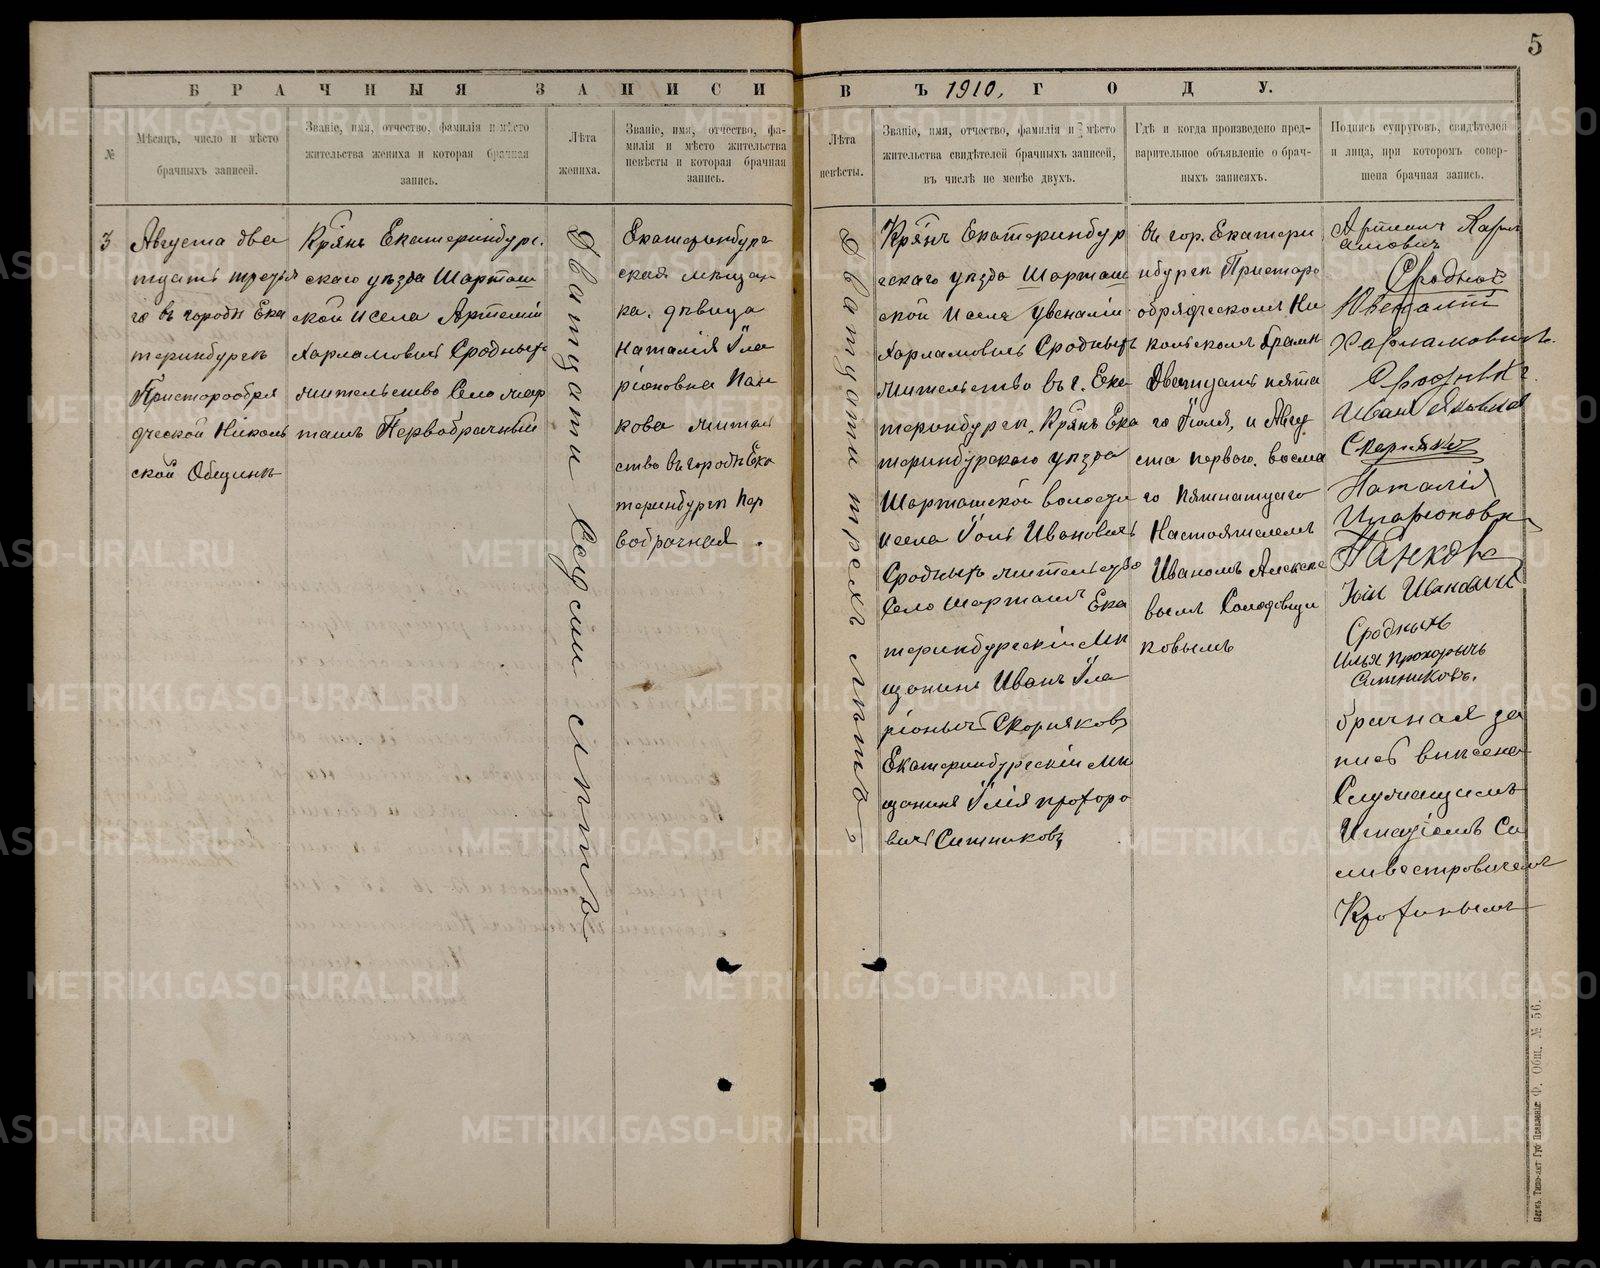 5
БРАЧНЫЯ ЗАПИСИ ВЪ 1910, ГОДУ.
№
Мѣсяцъ, число и мѣсто
брачныхъ записей.
Званіе, имя, отчество, фамилія и мѣсто
жительства жениха и которая брачная
запись.
Лѣта
жениха.
Званіе, имя, отчество, фа-
милія и мѣсто жительства
невѣсты и которая брачная
запись.
Лѣта
невѣсты.
Званіе, имя, отчество, фамилія и мѣсто
жительства свидѣтелей брачныхъ записей,
въ числѣ не менѣе двухъ.
Гдѣ и когда произведено пред-
варительное объявленіе о брач-
ныхъ записяхъ.
Подпись супруговъ, свидѣтелей
и лица, при которомъ совер-
шена брачная запись.
3
Августа два
тцать третья
го въ городѣ Ека
теринбургѣ
Пристарообря
дческой Николь
ской Общинѣ
Крянъ Екатеринбург.
скаго уѣзда Шарташ
ской исела Артемій
Харламовичъ Сродныхъ
жительство Село шар
ташъ Первобрачный
Дватцати Седми лѣтъ
Екатеринбург
ская мѣщан
ка. дѣвица
Наталія Ила
ріоновна Пан
кова жител
ство въ городѣ Ека
теринбургѣ пер
вобрачная.
Дватцати трехъ лѣтъ
Крянъ Екатеринбур
гскаго уѣзда Шарташ
ской исела Увеналій
Харламовичъ Сродныхъ
жительство въ г. Ека
теринбургѣ, Крянъ Ека
теринбурскаго уѣзда
Шарташской волости
исела Іонъ Ивановичъ
Сродныхъ жительство
Село Шарташъ Ека
теринбургскій мѣ
щанинъ Иванъ Ила
ріонычъ Скорняковъ
Екатеринбургскій мѣ
щанинъ Илія прохоро
вичъ Ситниковъ
въ гор. Екатери
нбургѣ Пристаро
обрядческомъ Ни
кольскомъ храмѣ
Двапцать пята
го Іюля, и Авгу
ста первого. восма
го пятнатцаго
Настоятелемъ
Иваномъ Алексѣе
вымъ Солодовни
ковымъ
Артемій Харл
амович
Сродных
Ювеналій
Харламовичъ.
Сродных
Иван
Скорняков
Наталія
Иларіоновн
Панков
Іон Ивановичъ
Сродныхъ
Илья Прохорычъ
Ситниковъ.
брачная за
пись вписана
Служащимъ
Игнатіемъ Си
ливестровичемъ
Крохинымъ